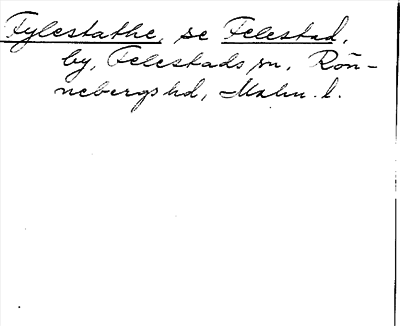 Fylestathe, se Felestad,
by, Felestads sn, Rön-
nebergs hd, Malm. l.